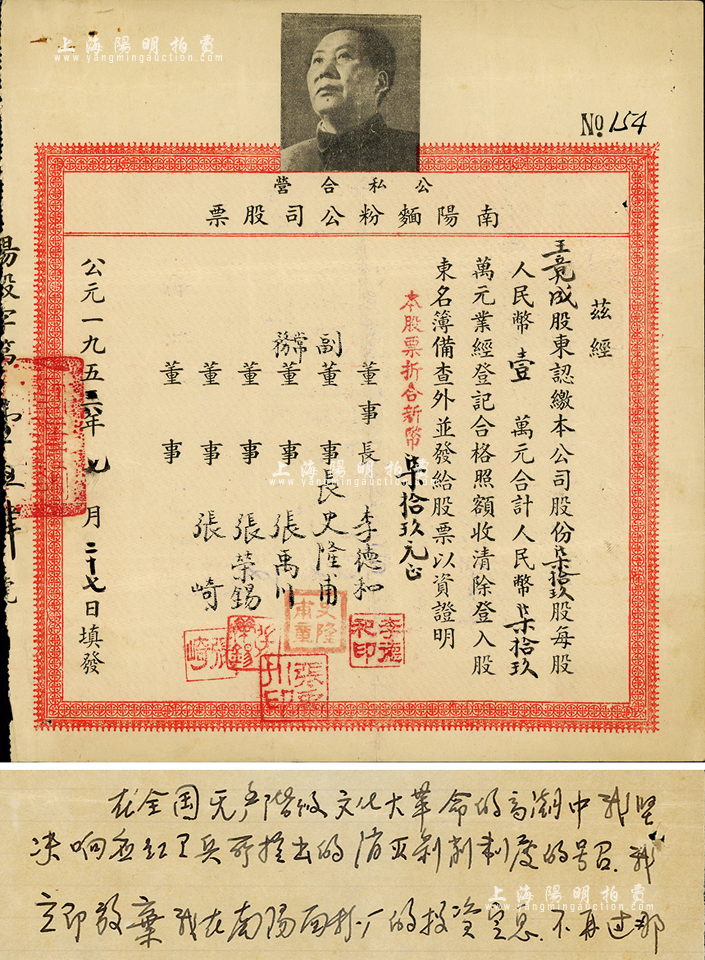 上海陽明拍賣
www.yangmingauction.com
No 154
營合私公
票股司公粉麵陽南
茲經
王竟成股東認繳本公司股份柒拾玖股每股
人民幣壹萬元合計人民幣柒拾玖
萬元業經登記合格照額收清除登入股
東名簿備查外並發給股票以資證明
本股票折合新幣柒拾玖元正
董事長 李德和
副董事長 史隆甫
常務董事 張禹川
董事 張榮錫
董事 張崎
董事
公元一九五六年七月二十七日填發
李德和印
史隆甫章
張禹川印
張崎
上海陽明拍賣
www.yangmingauction.com
在全国无产阶级文化大革命的高潮中我坚
决响应红卫兵所提出的消灭剥削制度的号召.我
立即放棄我在南阳面粉厂的投资定息.不再过那
上海陽明拍賣
www.yangmingauction.com